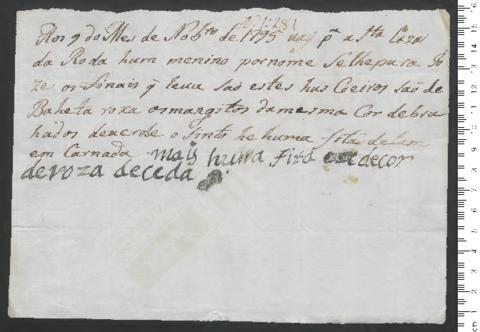 Aos 9 do Mes de Nobro de 1795 vay pa a Sta Caza
da Roda hum menino por nome Selhepura Jo
ze os Sinais q leva sao estes hus Coeiros sao de
Baheta roxa os mangitos da mesma Cor debra
hados de verde o Sinto he huma fita de lam
em Carnada mais huma Fita de cor
de roza de ceda